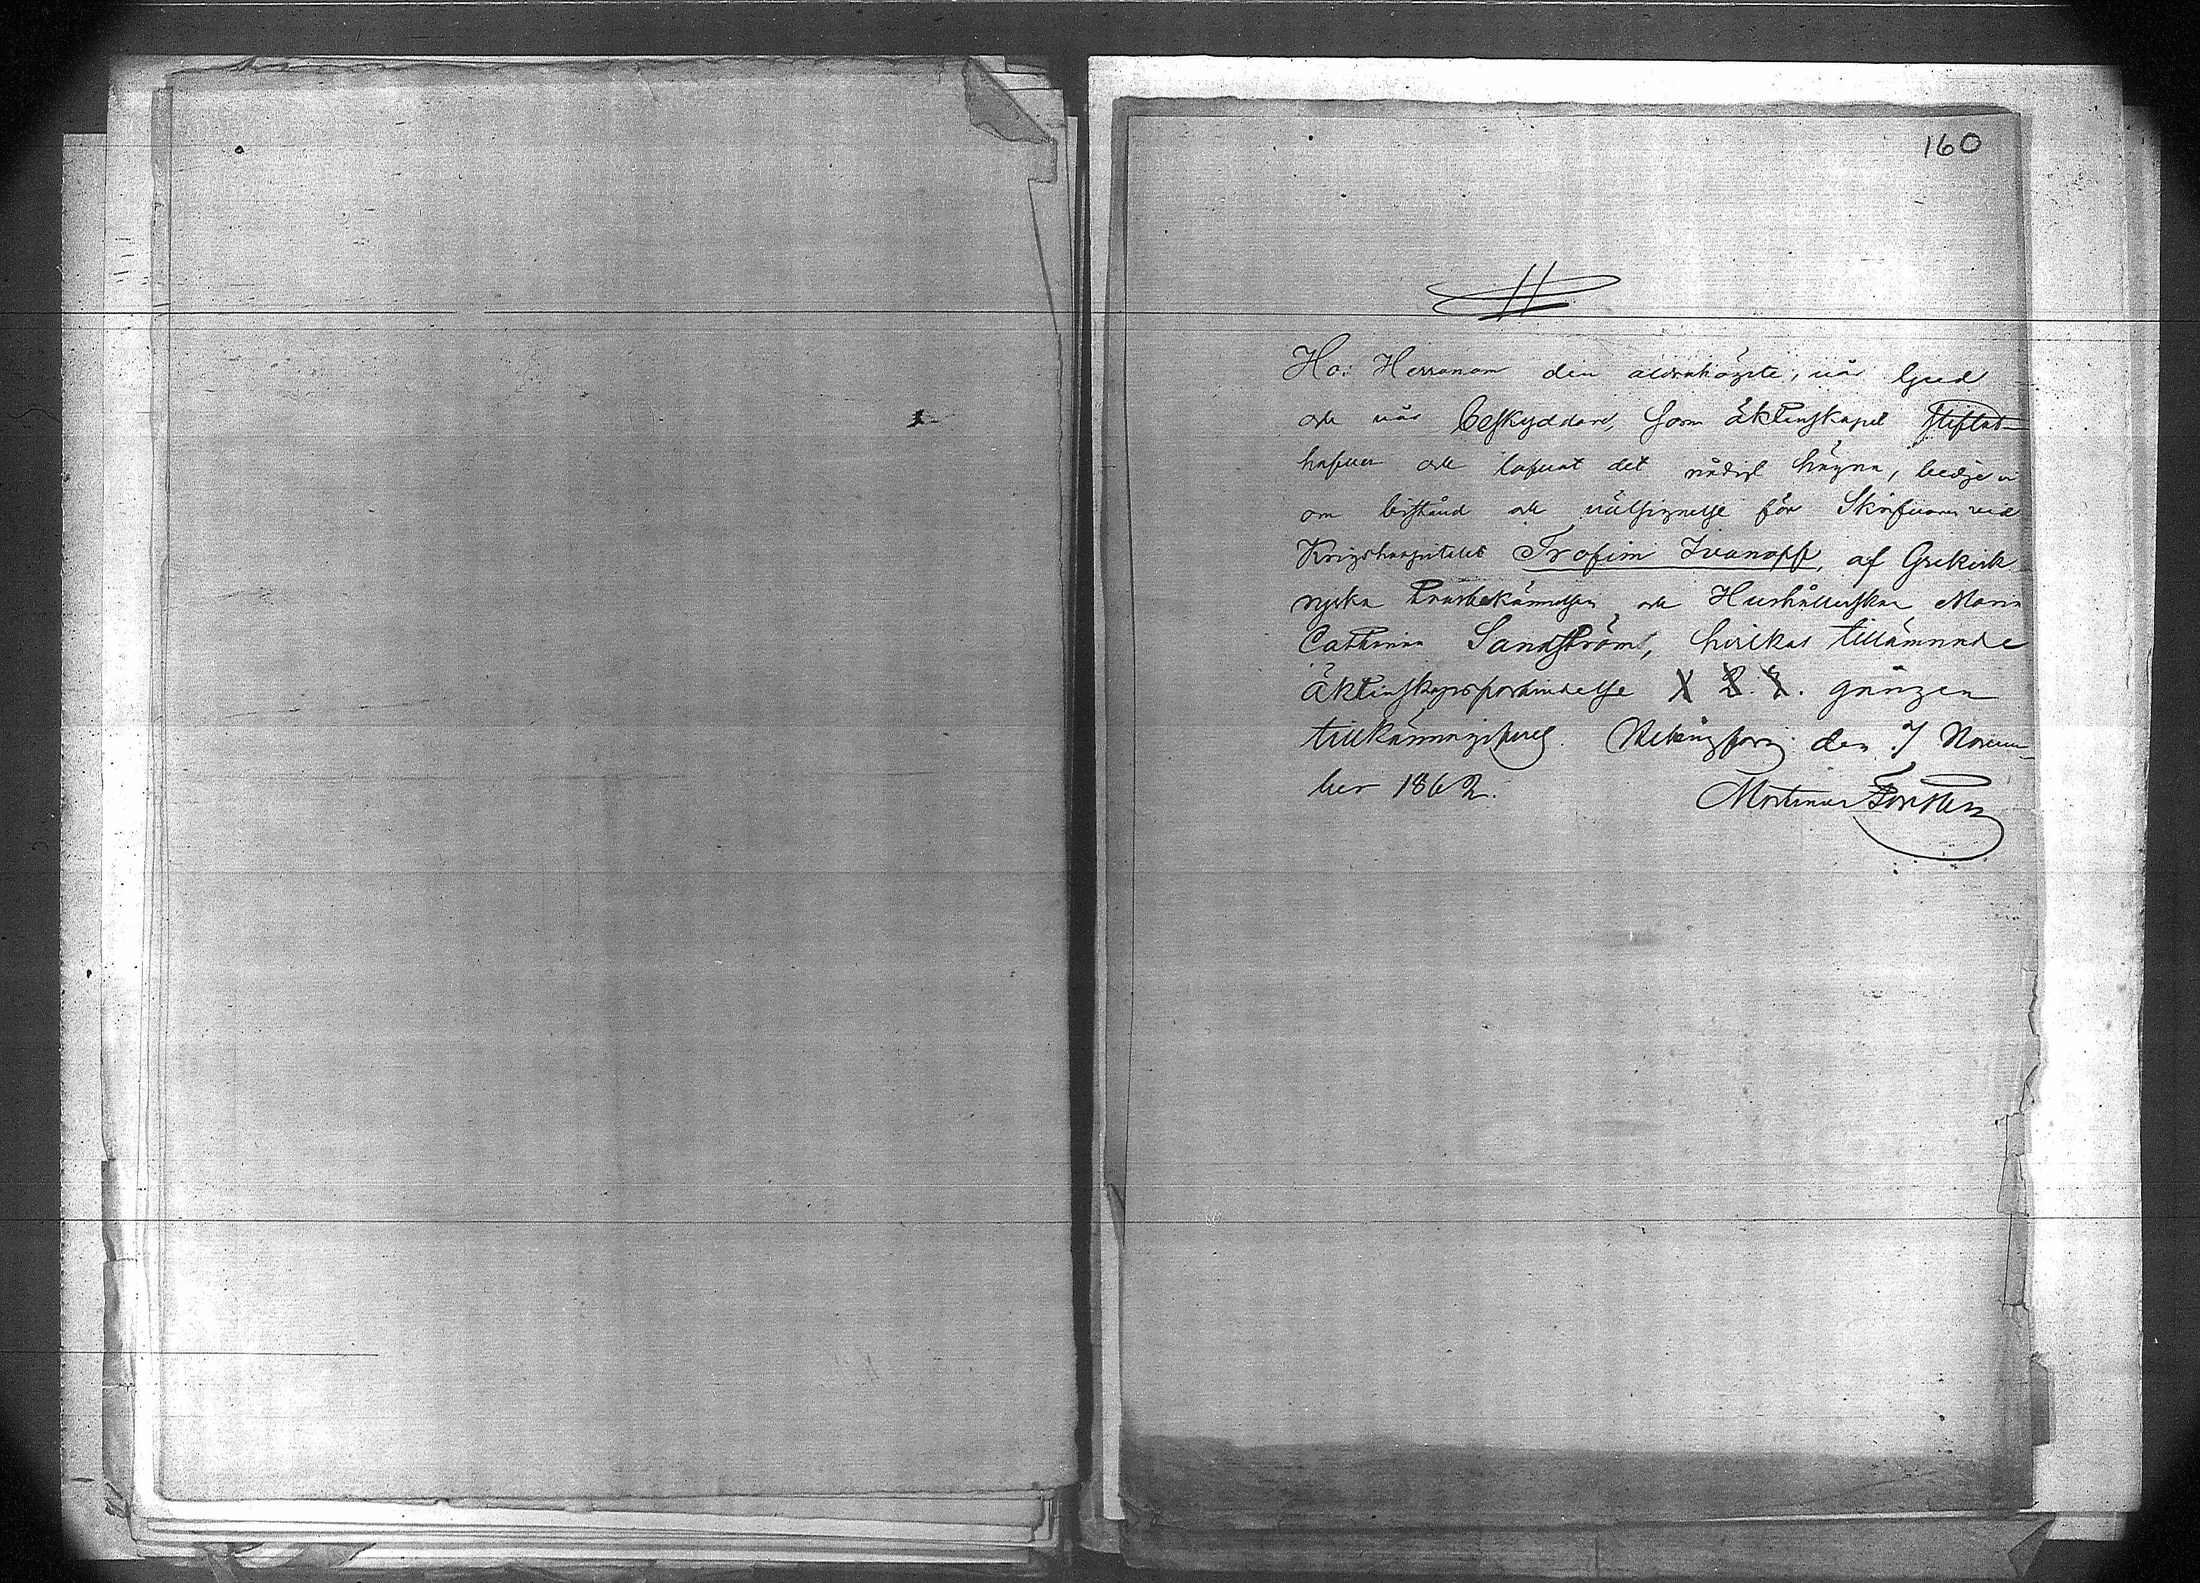 160
Hos Herranom den aldrahögste, vår Gud
och vår beskyddare, som äktenskapet stiftat
hafver och lofvat det nådigt hägna, bedje vi
om bistånd och välsignelse för Skrifvaren vid
Krigshospitalet Trofim Ivanoff, af Grekisk
ryska trosbekännelsen och Hushållerskan Maria
Catharina Sandström, hvilkas tillämnade
äktenskapsförbindelse X 2. X. gången
tillkännagifves. Helsingfors den 7 Novem
ber 1862.